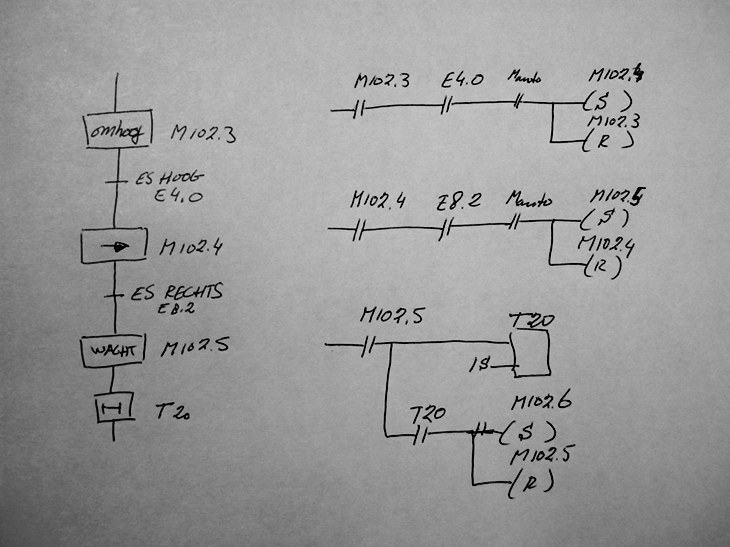 omhoog M102.3
ES HOOG
E4.0
M102.4
ES RECHTS
E8.2
WACHT M102.5
T20
M102.3 E4.0 M102.4
(S)
M102.3
(R)
M102.4 E8.2 M102.5
(S)
M102.4
(R)
M102.5 T20
1S
T20 M102.6
(S)
M102.5
(R)